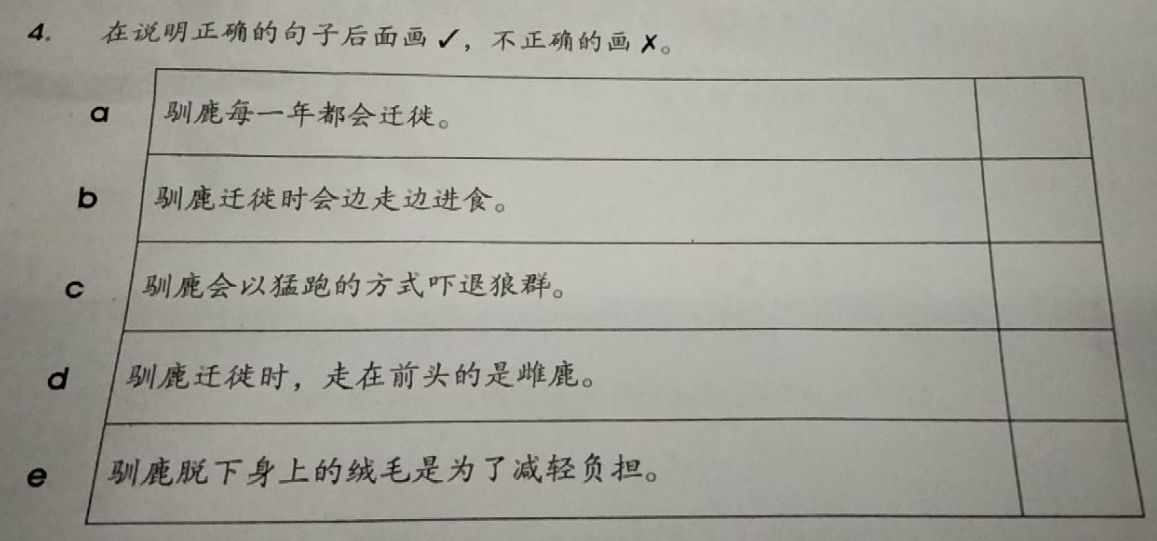 4. 在说明正确的句子后面画✓，不正确的画✗。
a 驯鹿每一年都会迁徙。
b 驯鹿迁徙时会边走边进食。
c 驯鹿会以猛跑的方式吓退狼群。
d 驯鹿迁徙时，走在前头的是雌鹿。
e 驯鹿脱下身上的绒毛是为了减轻负担。